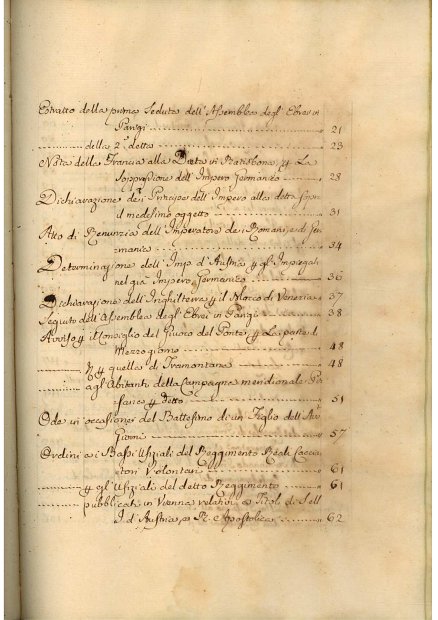 Estratto della prima Seduta dell'Assemblea degl'Ebrei in
Parigi ............ 21
............ della 2ª detta ............ 23
Nota della Francia alla Dieta di Ratisbona, p La
Soppressione dell'Impero Germanico ............ 28
Dichiarazione de i Principe dell'Impero alla detta sopra
il medesimo oggetto ............ 31
Atto di Renunzia dell'Imperatore de i Romani, e di Ger-
mania ............ 34
Determinazione dell'Imp. d'Austria p gl'Impiegati
nel già Impero Germanico ............ 36
Dichiarazione dell'Inghilterra p il Blocco di Venezia .... 37
Seguito dell'Assemblea degl'Ebrei in Parigi ............ 38
Avviso p il Consiglio del Giuoco del Ponte, p La parte di
Mezzogiorno ............ 48
............ p quella di Tramontana ............ 48
............ agl'Abitanti della Campagna meridionale
p detto ............ 51
Ode in occasione del Battesimo di un Figlio dell'
............ 57
Ordini a i Bassi Ufiziali del Reggimento Reale Caccia-
tori Volontari ............ 61
............ p gl'Ufiziali del detto Reggimento ............ 61
............ pubblicati in Vienna relativi a Titoli di S. M.
I. d'Austria, e R. e Apostolica ............ 62